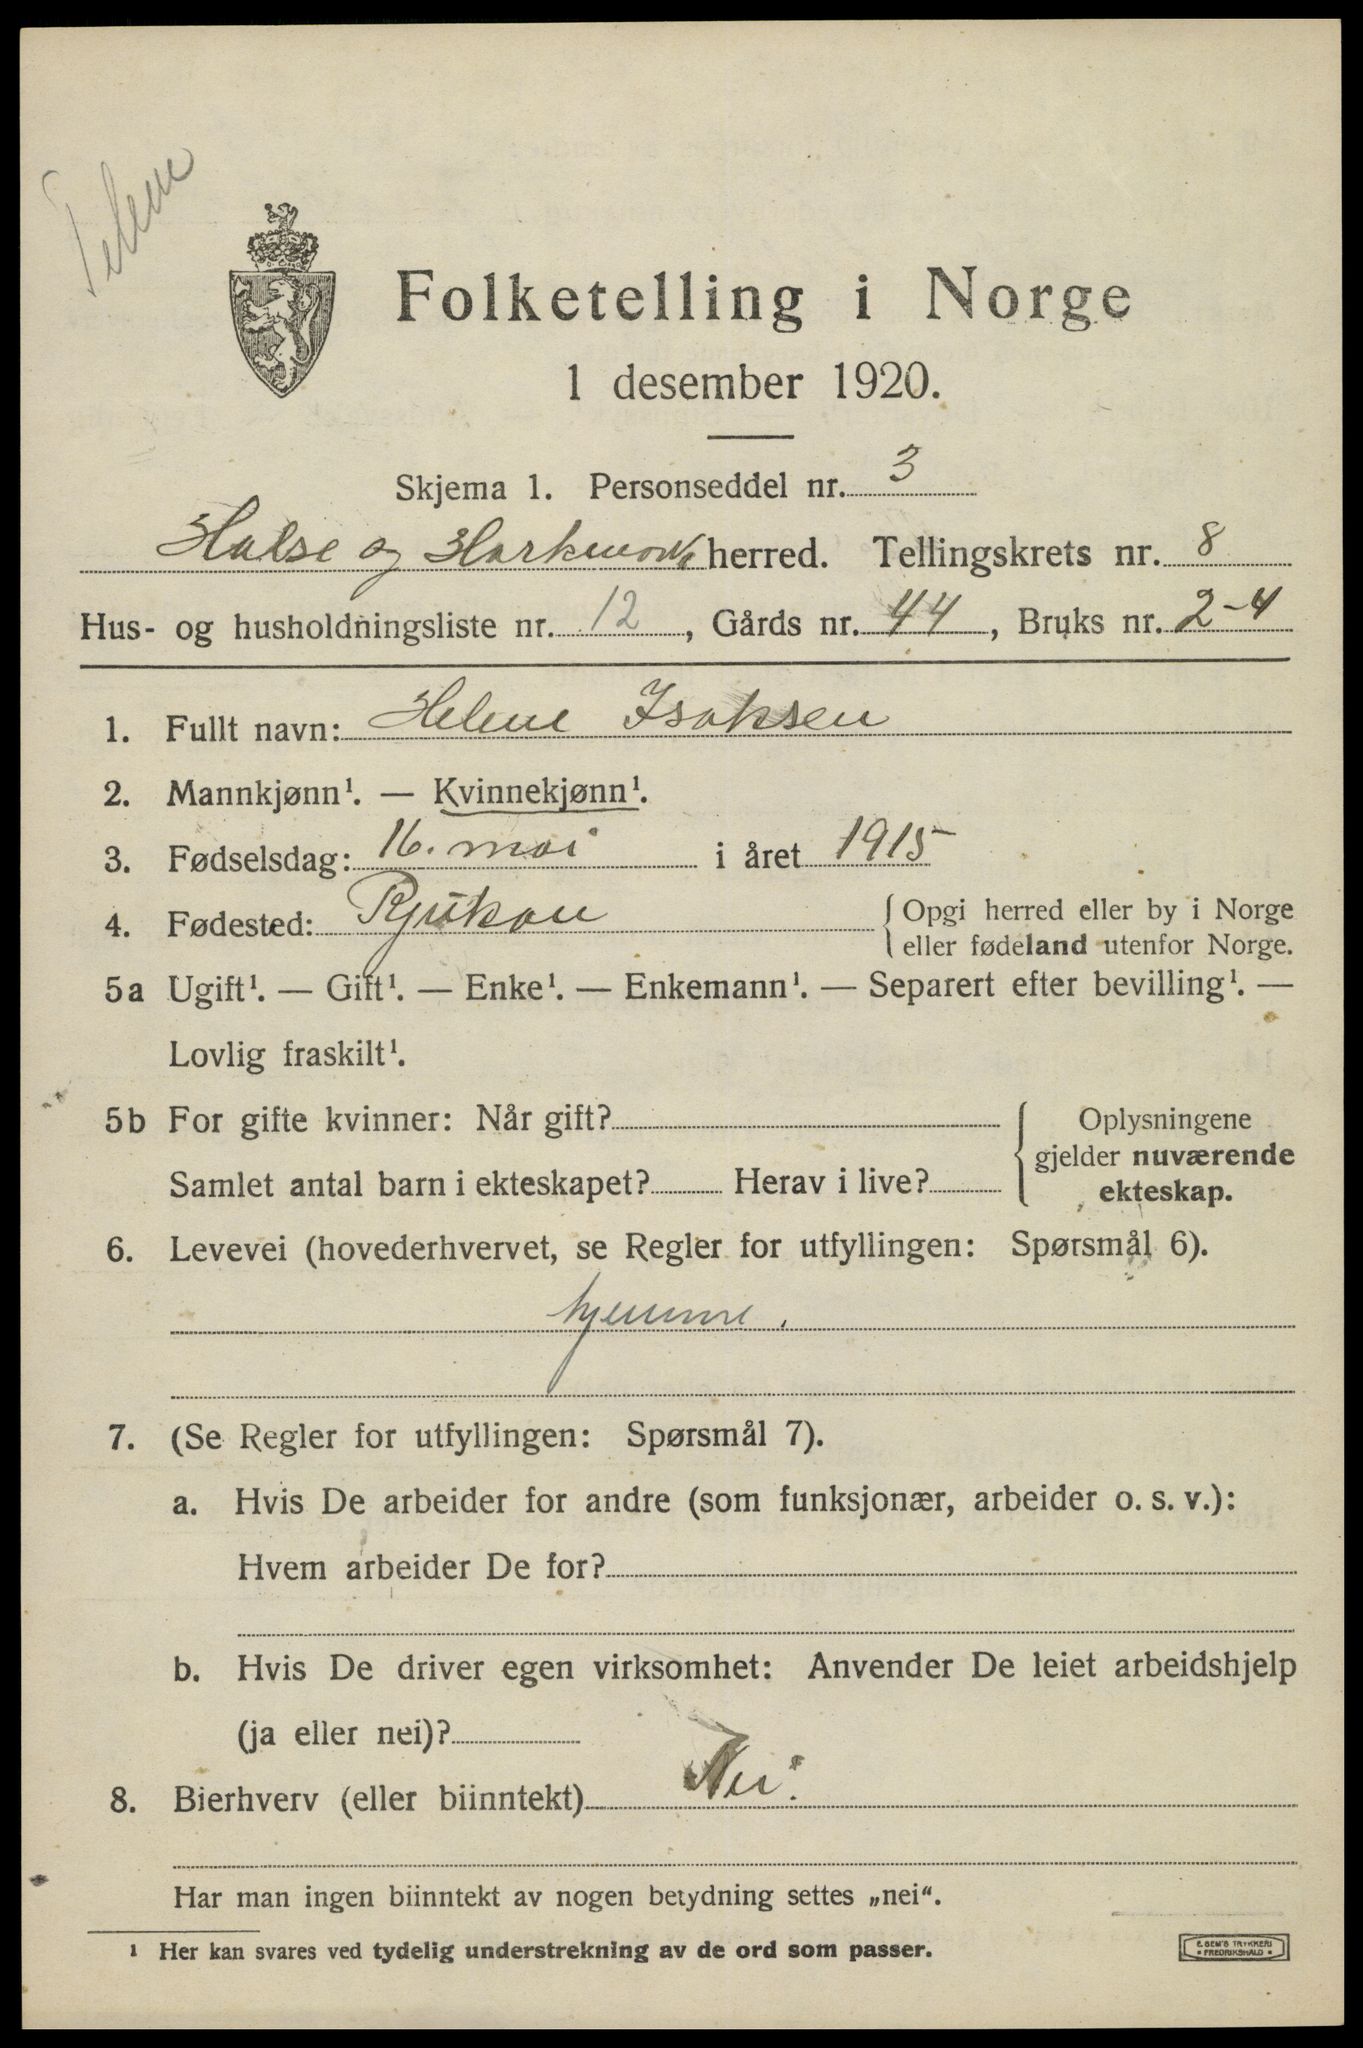 Telem
Folketelling i Norge
1 desember 1920.
Skjema 1. Personseddel nr. 3
Halse og Harkmark herred. Tellingskrets nr. 8
Hus- og husholdningsliste nr. 12, Gårds nr. 44, Bruks nr. 2-4
1. Fullt navn: Helene Isaksen
2. Mannkjønn¹. — Kvinnekjønn¹.
3. Fødselsdag: 16. mai i året 1915
4. Fødested: Rjukan { Opgi herred eller by i Norge
eller fødeland utenfor Norge.
5a Ugift¹. — Gift¹. — Enke¹. — Enkemann¹. — Separert efter bevilling¹. —
Lovlig fraskilt¹.
5b For gifte kvinner: Når gift? { Oplysningene
gjelder nuværende
Samlet antal barn i ekteskapet? Herav i live? ekteskap.
6. Levevei (hovederhvervet, se Regler for utfyllingen: Spørsmål 6).
hjemme.
7. (Se Regler for utfyllingen: Spørsmål 7).
a. Hvis De arbeider for andre (som funksjonær, arbeider o. s. v.):
Hvem arbeider De for?
b. Hvis De driver egen virksomhet: Anvender De leiet arbeidshjelp
(ja eller nei)?
8. Bierhverv (eller biinntekt) Nei.
Har man ingen biinntekt av nogen betydning settes „nei“.
¹ Her kan svares ved tydelig understrekning av de ord som passer.
E. SEM'S TRYKKERI
• FREDRIKSHALD •